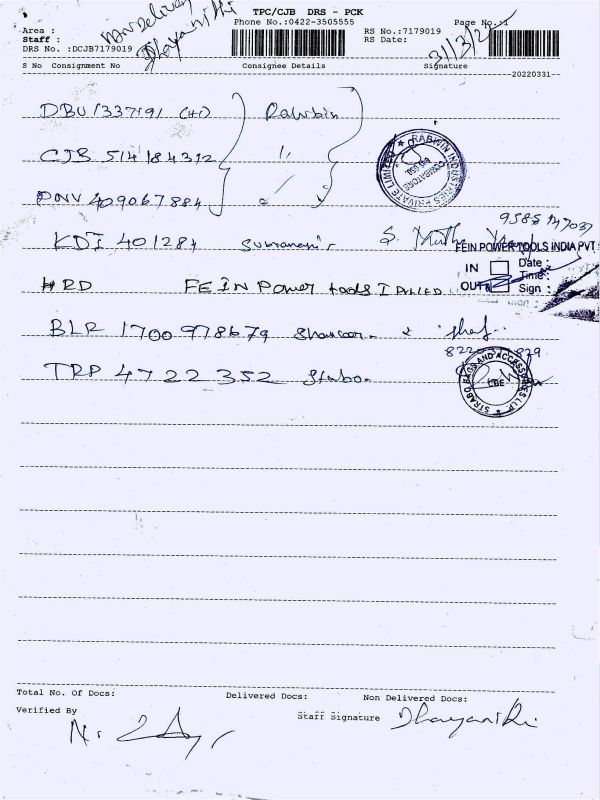 TPC/CJB DRS - PCK
Phone No.:0422-3505555
Page No.:1
Area :
Staff :
DRS No. :DCJB7179019
Dhayanithi
RS No.:7179019
RS Date:
31/3/22
S No Consignment No Consignee Details Signature
20220331--
DBU 1337191 (H) Rabwin
CJB 514184312 "
PNV 409067884 "
RABWIN INDUSTRIES PRIVATE LIMITED
COIMBATORE
KDI 401284 Subramani S.
9585147037
FEIN POWER TOOLS INDIA PVT
IN Date :
Time :
OUT Sign :
HRD FEIN Power tools I Pvt LTD
BLR 1700978679
TRP 4722352 Strabo
STRABO BAGS AND ACCESSORIES LLP
CBE
Total No. Of Docs: Delivered Docs: Non Delivered Docs:
Verified By
Staff Signature Dhayanithi